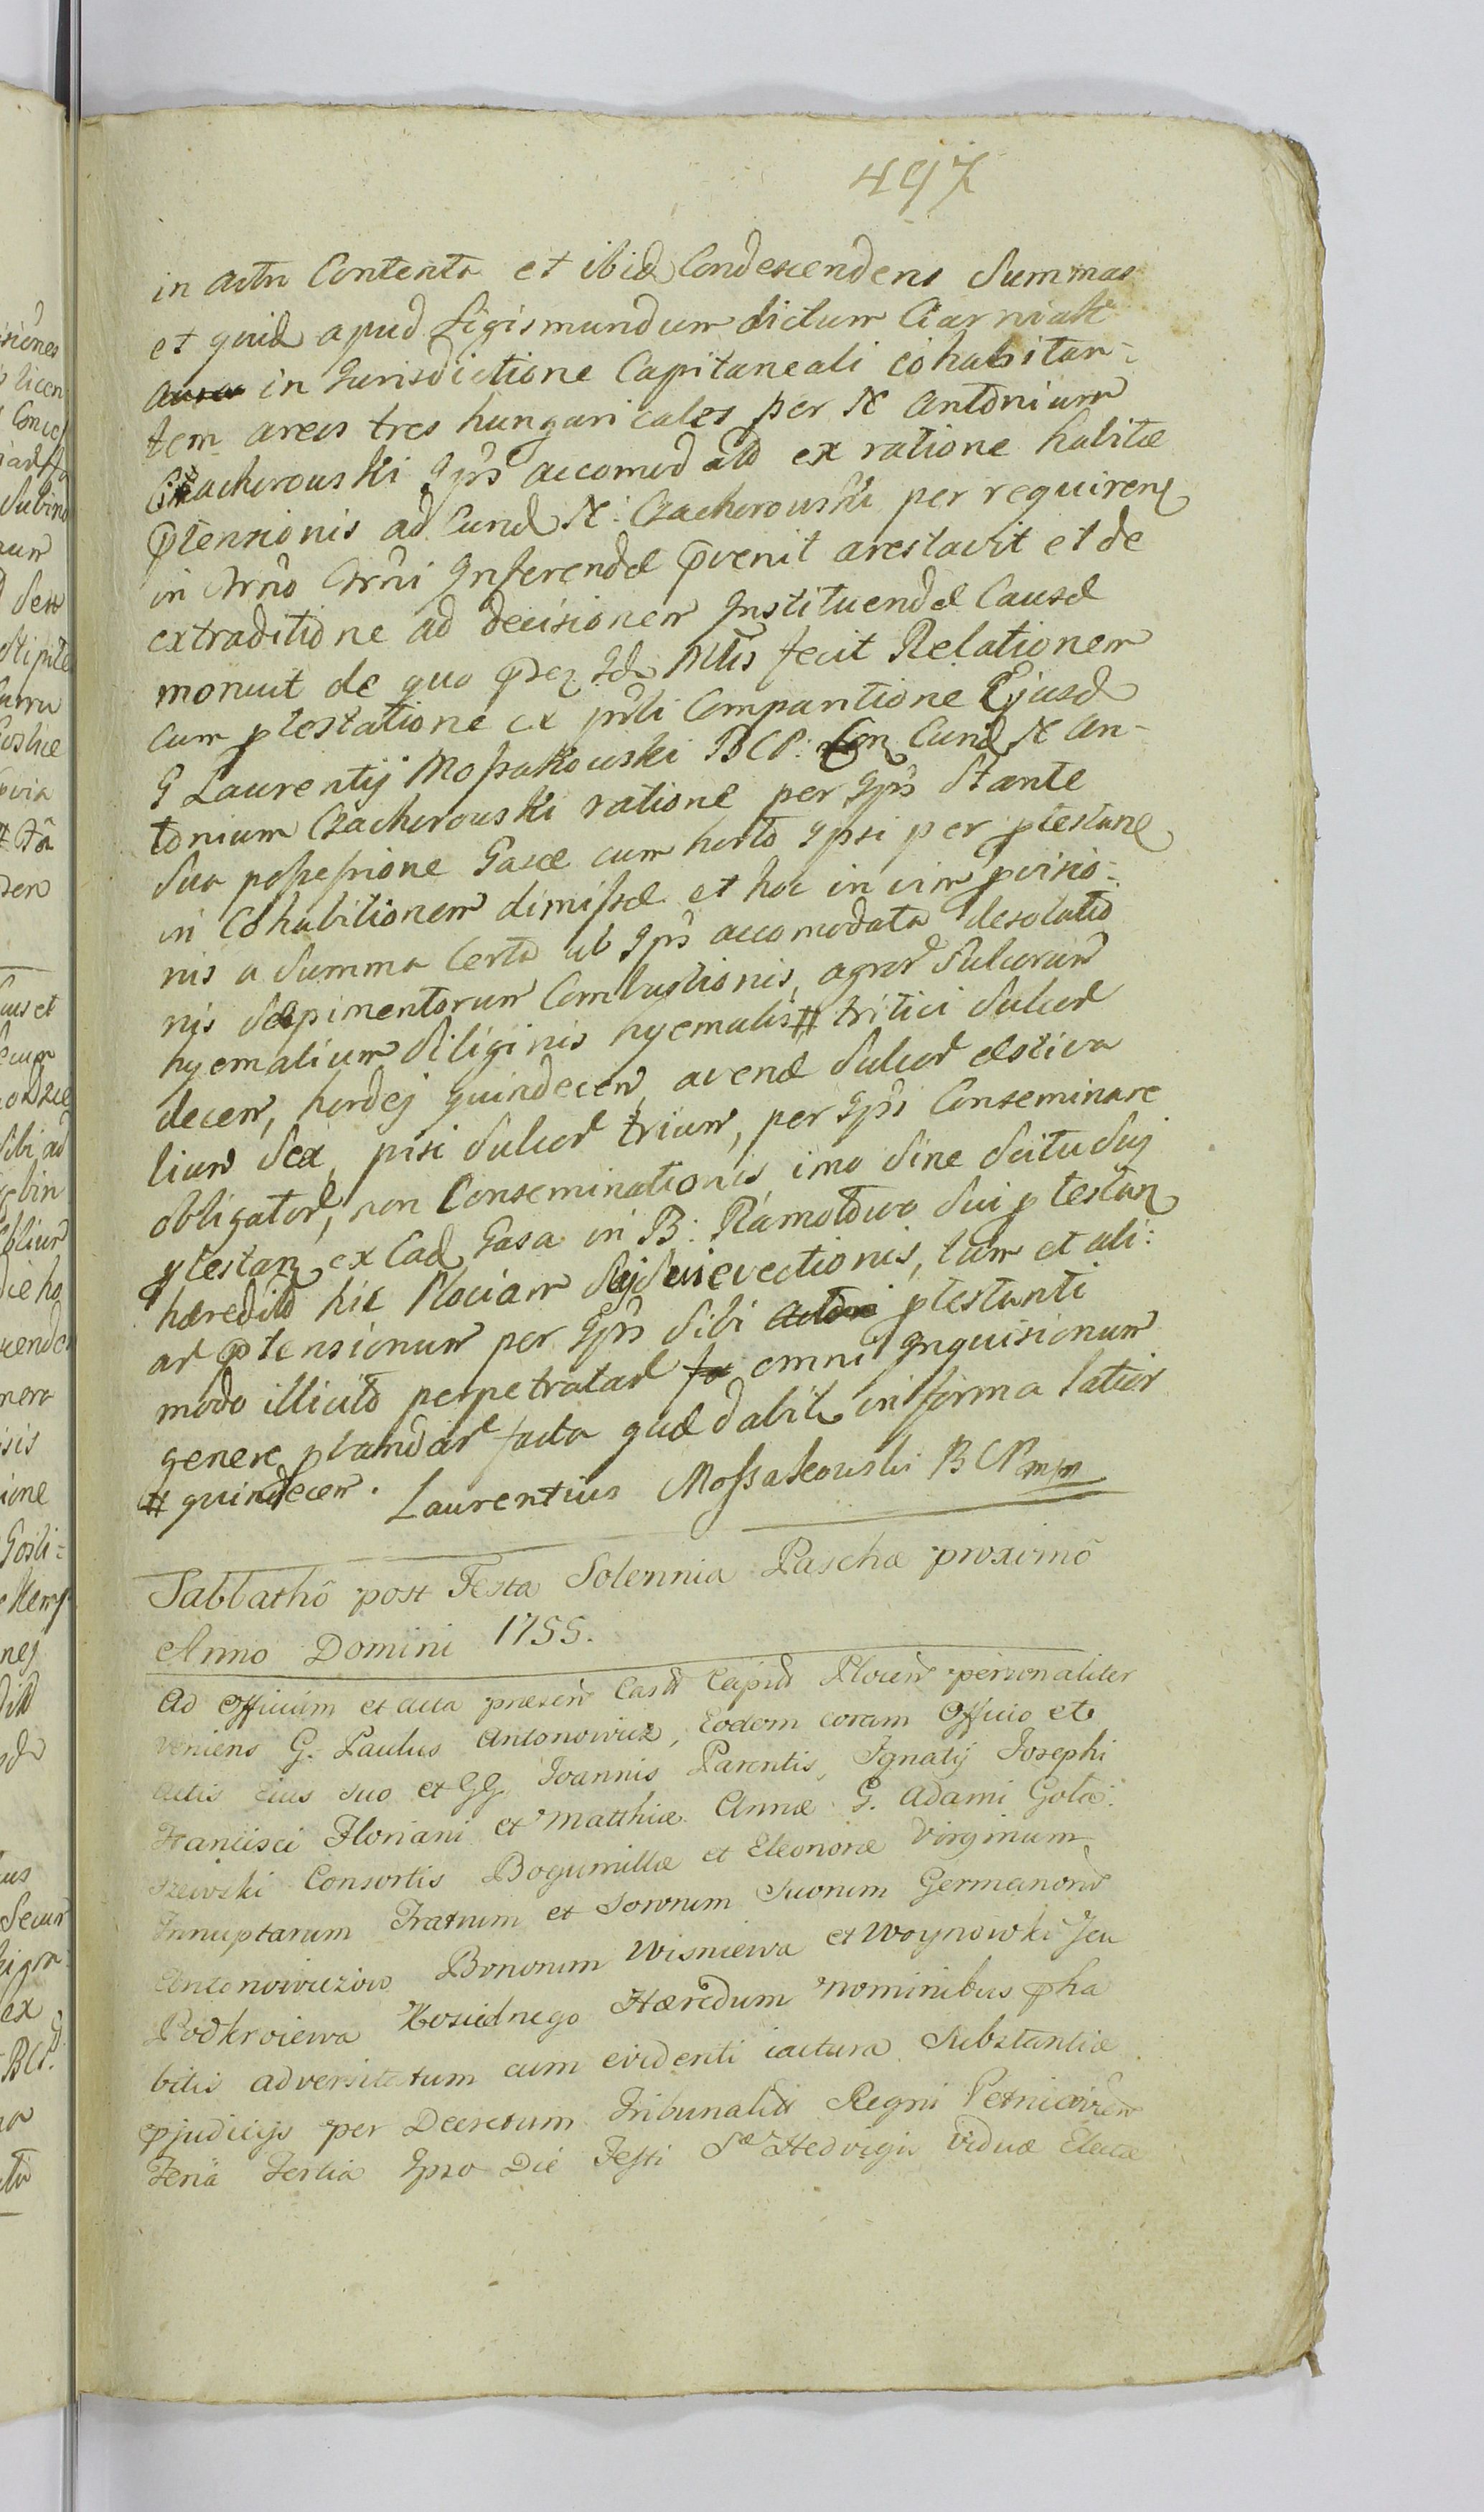 497
in actu Contenta et ibid Condescendens Summas
et quid apud Sigismundum dictum Ciarniak
in Jurisdictione Capitaneali cohabitan-
tem areos tres hungaricales per N Antonium
Czachorouski Ips accomodato ex ratione habitæ
ptensionis ad Eund N: Czachorouski per requiren
in Inferendæ pvenit arestavit et de
extraditione ad decisionem Instituendæ Causæ
monuit de quo Id Mtis fecit Relationem
cum ptestatione ex Comparitione Ejusd
G Laurentij Mossakowski BCP: Con Eund N An-
tonium Czachorouski ratione per Ips Stante
Sua possessione Casæ cum horto Ipsi per ptestane
in Cohabitionem dimissæ et hoc in vim pvisio-
nis a Summa Certa ab Ips accomodata desolatio
nis Sepimentorum Combustionis, agror Sulcorum
hyemalium Siliginis hyemalis # tritici Sulcor
decem, hordej quindecem, avenæ Sulcor æstiva
lium Sex, pisi Sulcor trium, per Ips Conseminare
obligator, non Conseminationis, imo Sine Scitu Suj
ptestan ex Ead Casa in B: Ramotowo Sui ptestan
hæredito hic Plociam evectionis, tum et ali:
ar ptensionum per Ips Sibi ptestanti
modo illicito perpetratar omni Inquisionum
genere pbandar facta quæ dabit in forma latior
# quindecem. Laurentius Mossakowski BCP mp
Sabbathô post Festa Solennia Paschæ proximô
Anno Domini 1755.
Ad Officium et acta præsen Castr Capit Plocen personaliter
veniens G. Paulus Antonowicz, Eodem coram Officio et
actis eius suo et GG Joannis Parentis, Ignatij Josephi
Francisci Floriani et Matthiæ Annæ G. Adami Gola:
szewski Consortis Bogumillæ et Eleonoræ Virginum
Innuptarum Fratrum et Sororum Suorum Germanorum
Antonowiczow Bonorum Wisniewa et Woynowki Seu
Podkroiewa Kosiednego Hæredum nominibus pha
bitis adversitatum cum evidenti iactura Substantiæ
pjudicijs per Decretum Tribunalitt Regni Petricovien
Feria Tertia Ipso Die Festi Sæ Hedvigis Viduæ Electæ